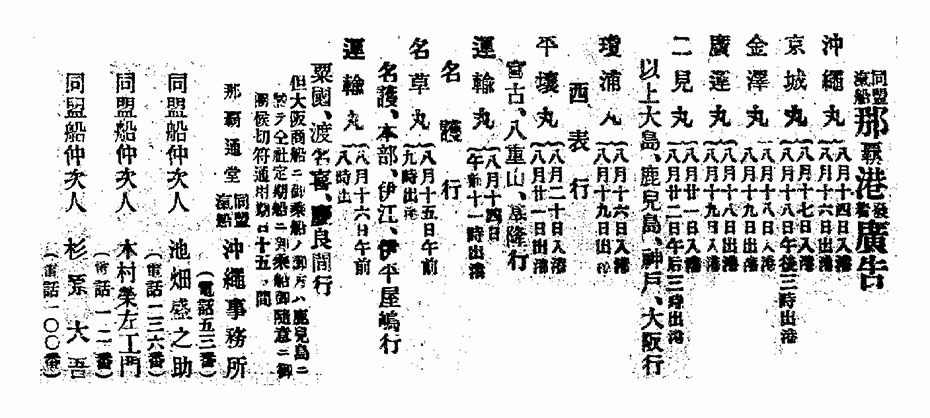 同盟汽船那覇港發着廣告
沖繩丸 八月十四日入港 八月十六日出港
京城丸 八月十七日入港 八月十八日午後三時出港
金澤丸 八月十八日入港 八月十九日出港
廣運丸 八月十八日入港 八月十九日出港
二見丸 八月廿一日入港 八月廿二日午后三時出港
以上大島、鹿兒島、神戸、大阪行
瓊浦丸 八月十六日入港 八月十九日出港
西表行
平壤丸 八月二十日入港 八月廿一日出港
宮古、八重山、基隆行
運輸丸 八月十四日 午前十一時出港
名護行
名草丸 八月十五日午前 九時出港
名護、本部、伊江、伊平屋嶋行
運輸丸 八月十六日午前 八時出
粟國、渡名喜、慶良間行
但大阪商船ニ御乘船ノ御方ハ鹿兒島ニ
於テ仝社定期船ニ御乘船御隨意ニ御
候切符通用期日十五日間
那覇通堂 同盟汽船 沖繩事務所
(電話五三番)
同盟船仲次人 池畑盛之助
(電話一三六番)
同盟船仲次人 木村榮左工門
(電話一二番)
同盟船仲次人 杉原大吾
(電話一〇〇番)